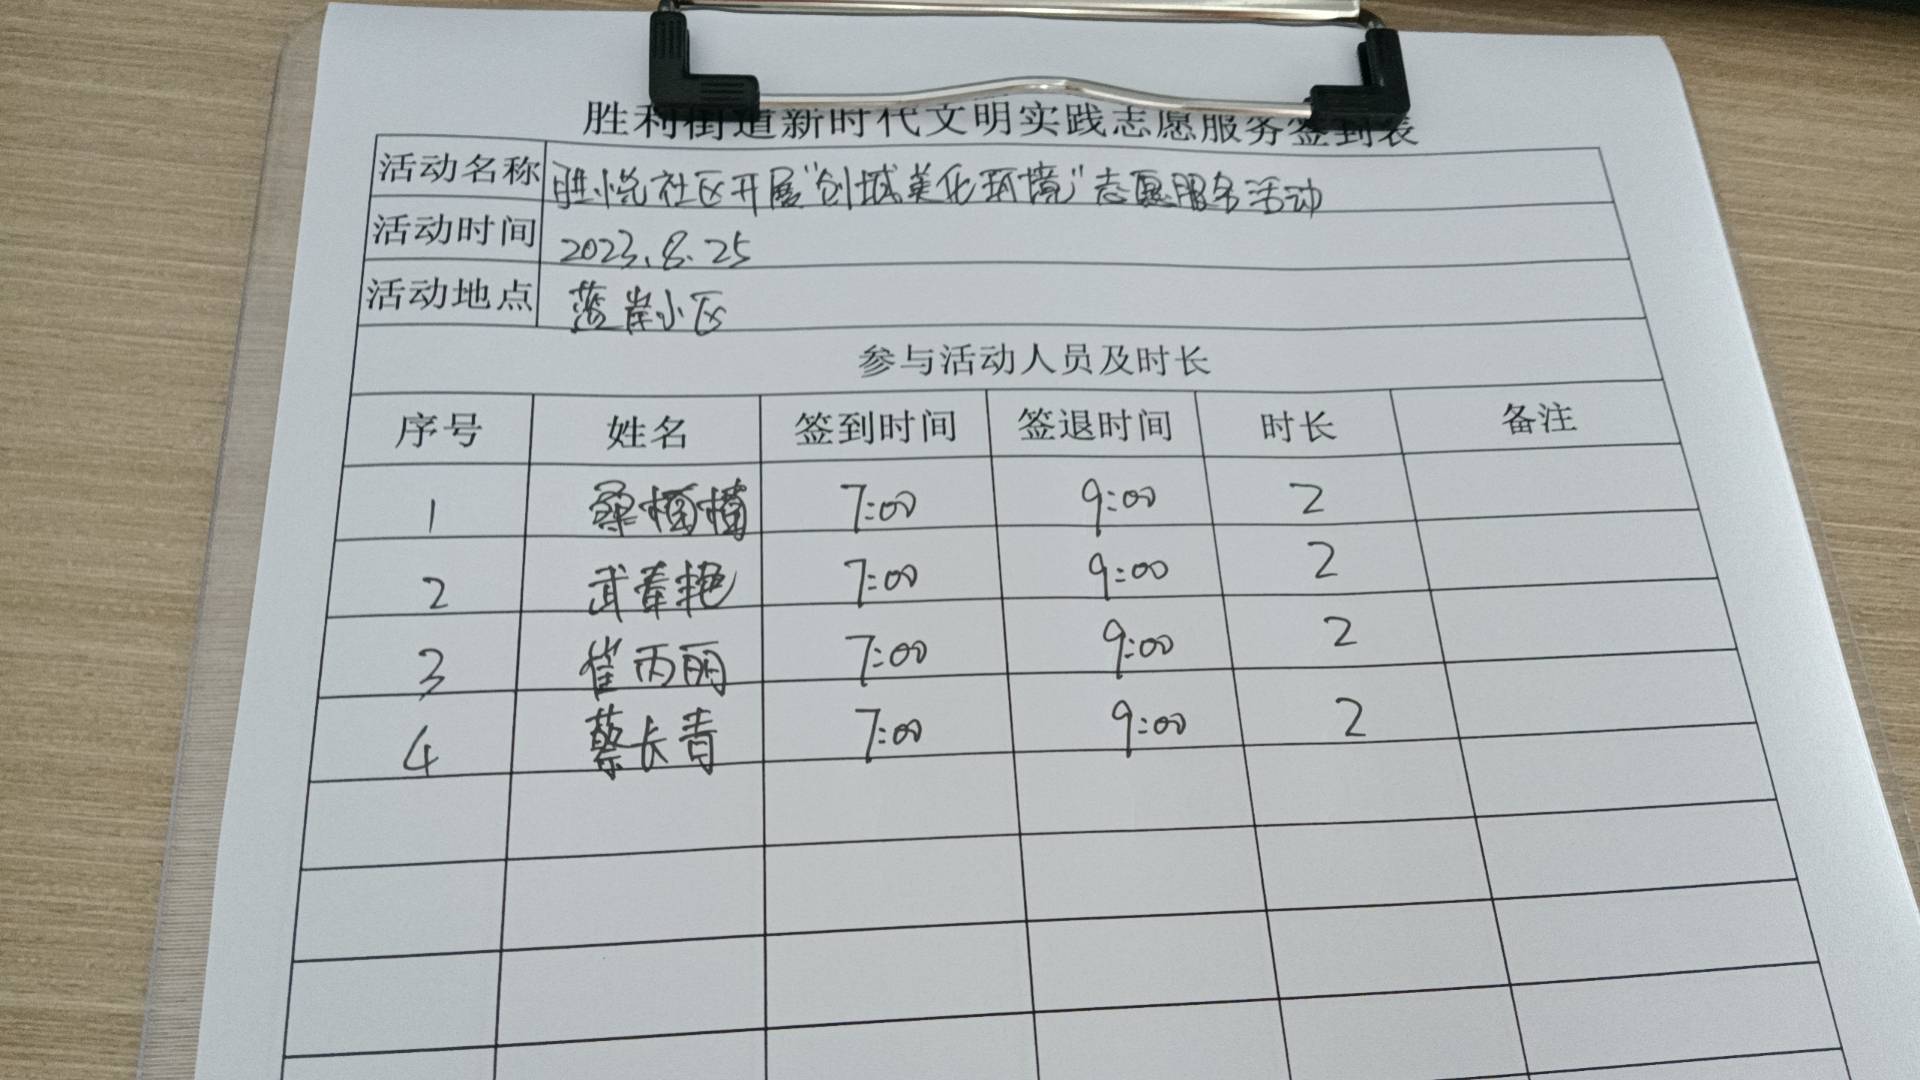 胜利街道新时代文明实践志愿服务签到表
活动名称 胜悦社区开展"创城美化环境"志愿服务活动
活动时间 2023.8.25
活动地点 蓝岸小区
参与活动人员及时长
序号 姓名 签到时间 签退时间 时长 备注
1 7:00 9:00 2
2 武春艳 7:00 9:00 2
3 崔丙丽 7:00 9:00 2
4 蔡长青 7:00 9:00 2